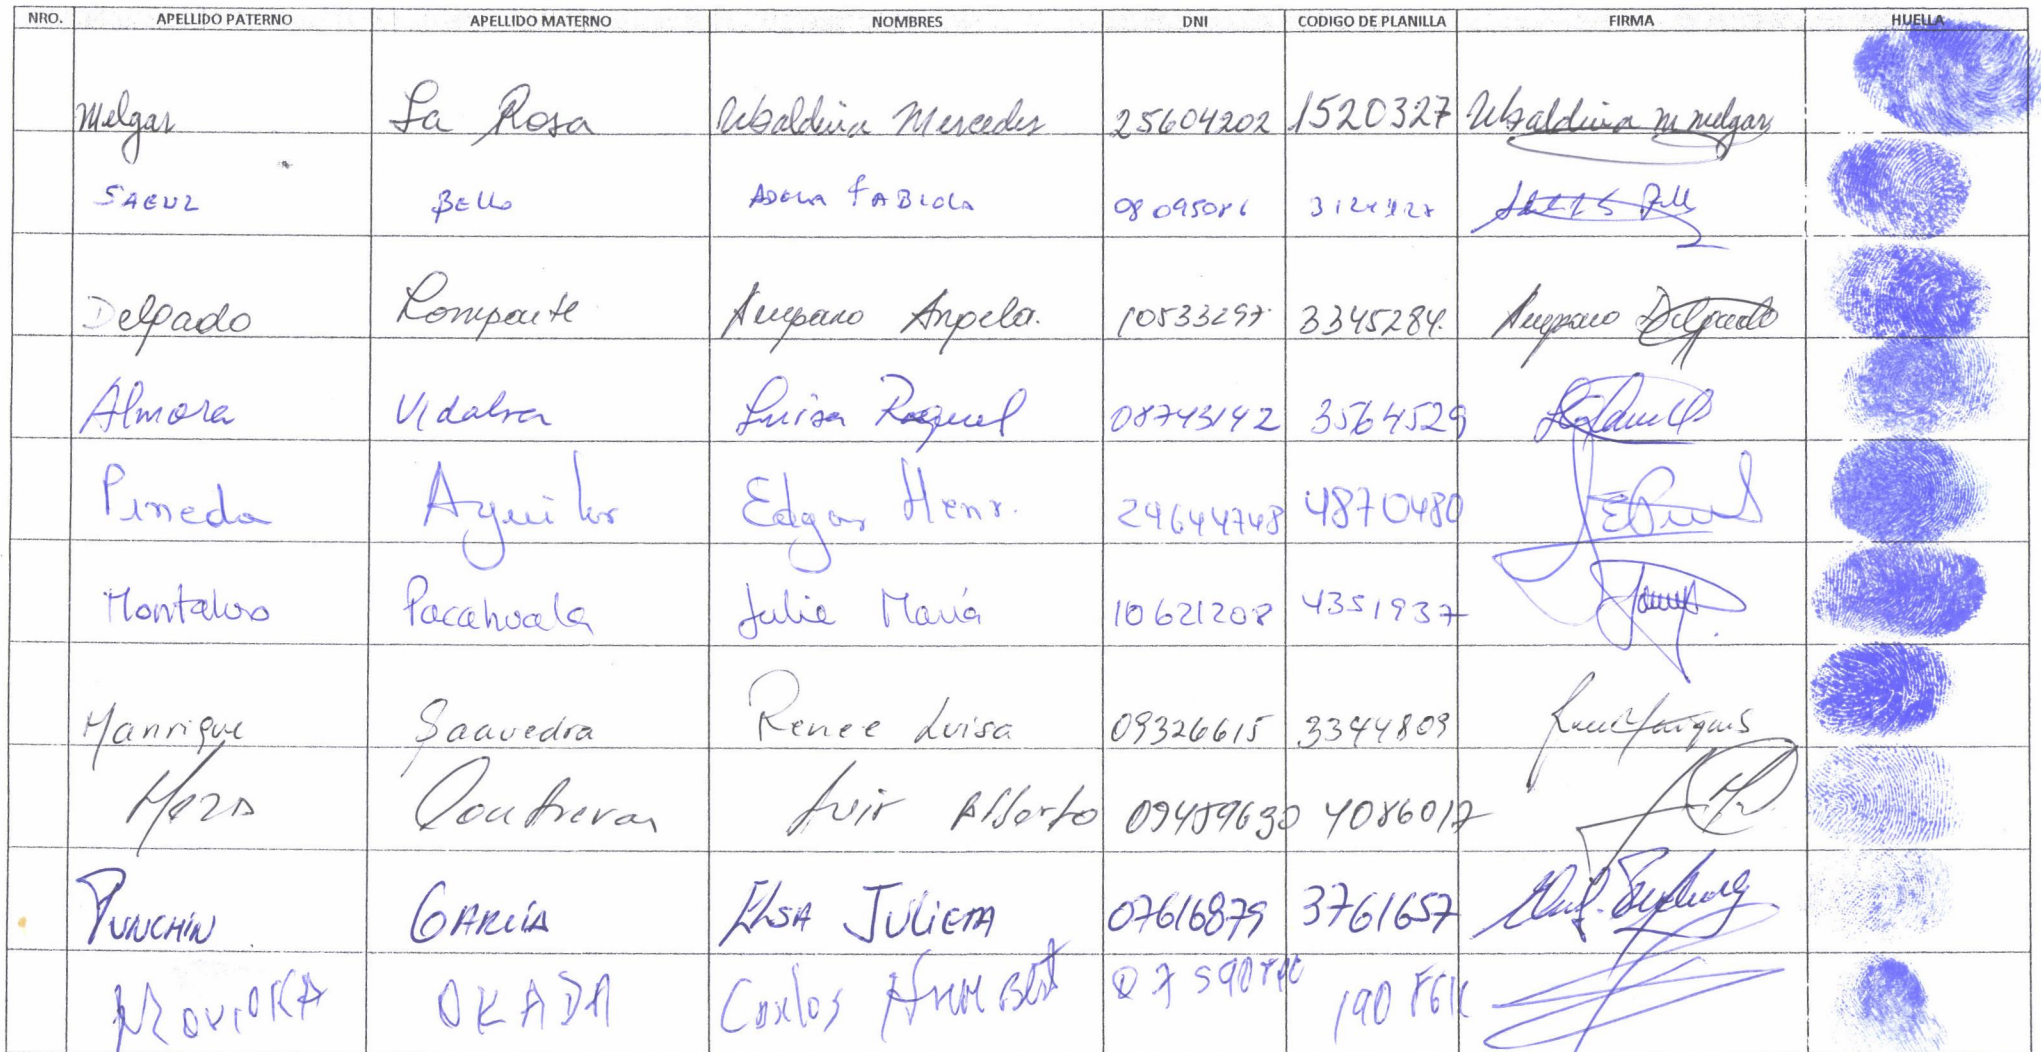 NRO. APELLIDO PATERNO APELLIDO MATERNO NOMBRES DNI CODIGO DE PLANILLA FIRMA HUELLA
Melgar La Rosa Ubaldina Mercedes 25604202 1520327 Ubaldina M Melgar
SAENZ BELLO ADELA FABIOLA
Delgado Lomparte Amparo Angela. 10533297 3345284. Amparo Delgado
Almora Vidalva Luisa Raquel 08743142 3564529
Pineda Aguilar Edgar Henr. 29644748 4870480
Montalvo Pacahuala Julia María 10621208 4351937
Manrique Saavedra Renee Luisa 09326615 3344809
Meza Contreras Luis Alberto 09489630 4086017
PUNCHIN GARCIA ELSA JULIETA 07616879 3761657
OKADA Carlos